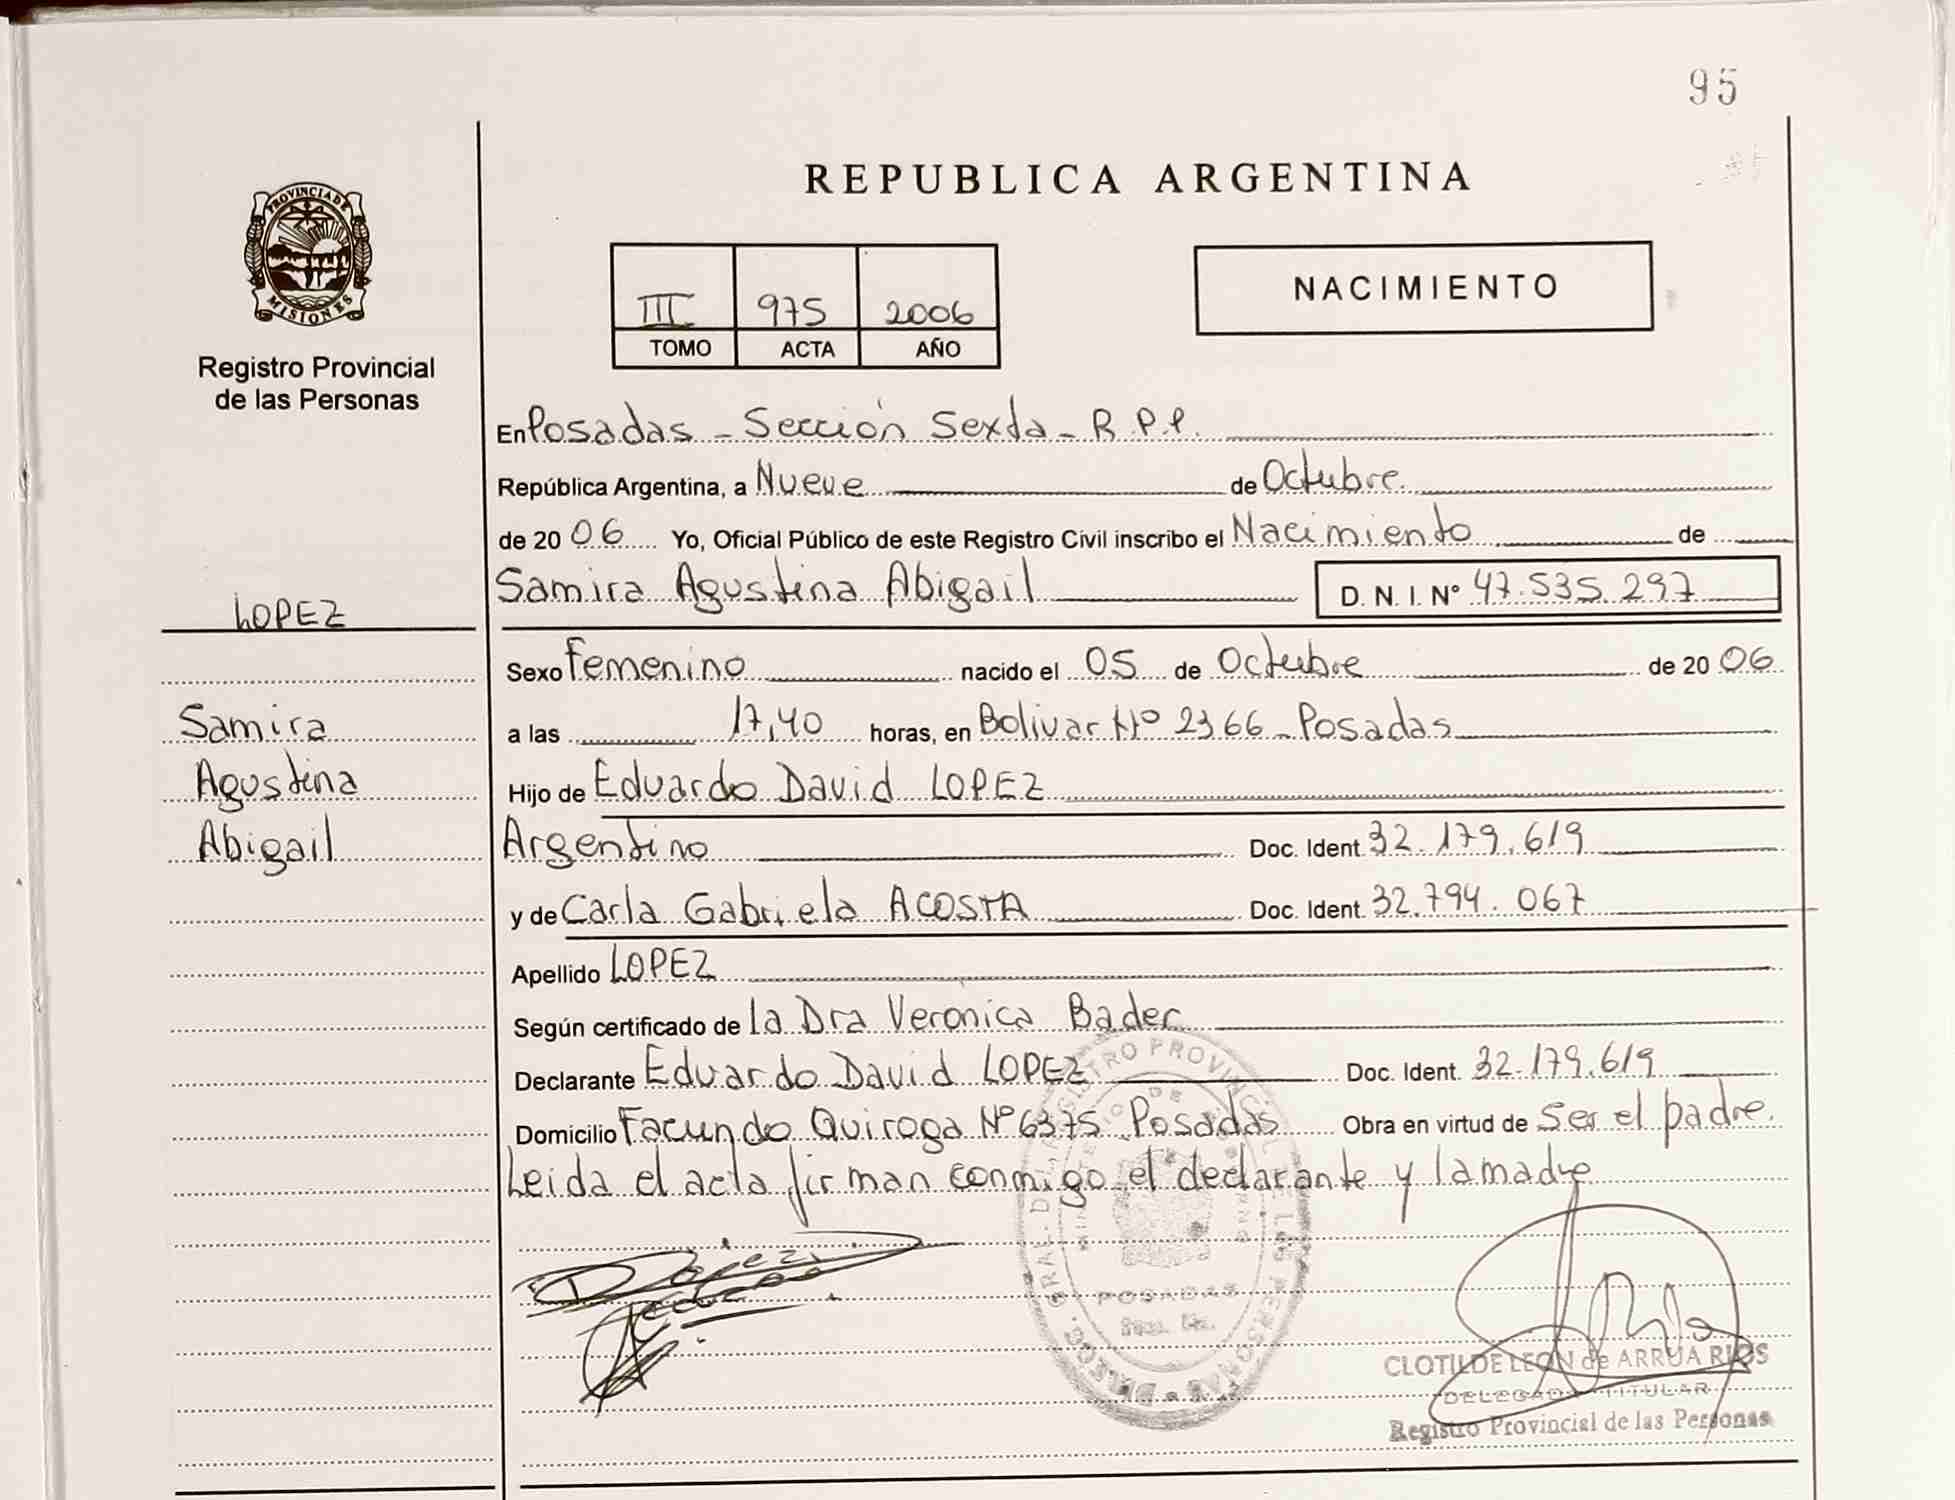 95
PROVINCIA DE
MISIONES
Registro Provincial
de las Personas
REPUBLICA ARGENTINA
III 975 2006
TOMO ACTA AÑO
NACIMIENTO
En Posadas - Sección Sexta - R.P.P.
República Argentina, a Nueve de Octubre
de 2006 Yo, Oficial Público de este Registro Civil inscribo el Nacimiento de
Samira Agustina Abigail D. N. I. N° 47.535.297
LOPEZ
Samira
Agustina
Abigail
Sexo Femenino nacido el 05 de Octubre de 2006
a las 17,40 horas, en Bolivar N° 2366 - Posadas
Hijo de Eduardo David LOPEZ
Argentino Doc. Ident. 32.179.619
y de Carla Gabriela ACOSTA Doc. Ident. 32.794.067
Apellido LOPEZ
Según certificado de la Dra Veronica Bader
Declarante Eduardo David LOPEZ Doc. Ident. 32.179.619
Domicilio Facundo Quiroga N° 6375 Posadas Obra en virtud de Ser el padre.
Leida el acta firman conmigo el declarante y la madre
POSADAS
CLOTILDE LEON de ARRUA RIOS
DELEGADA TITULAR
Registro Provincial de las Personas